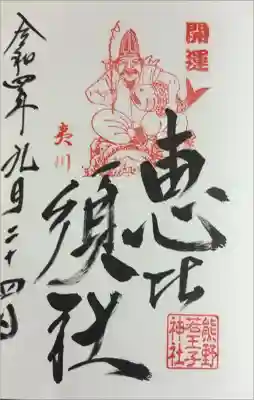 開運
夷川
恵比
須社
熊野
若王子
神社
令和四年九月二十四日